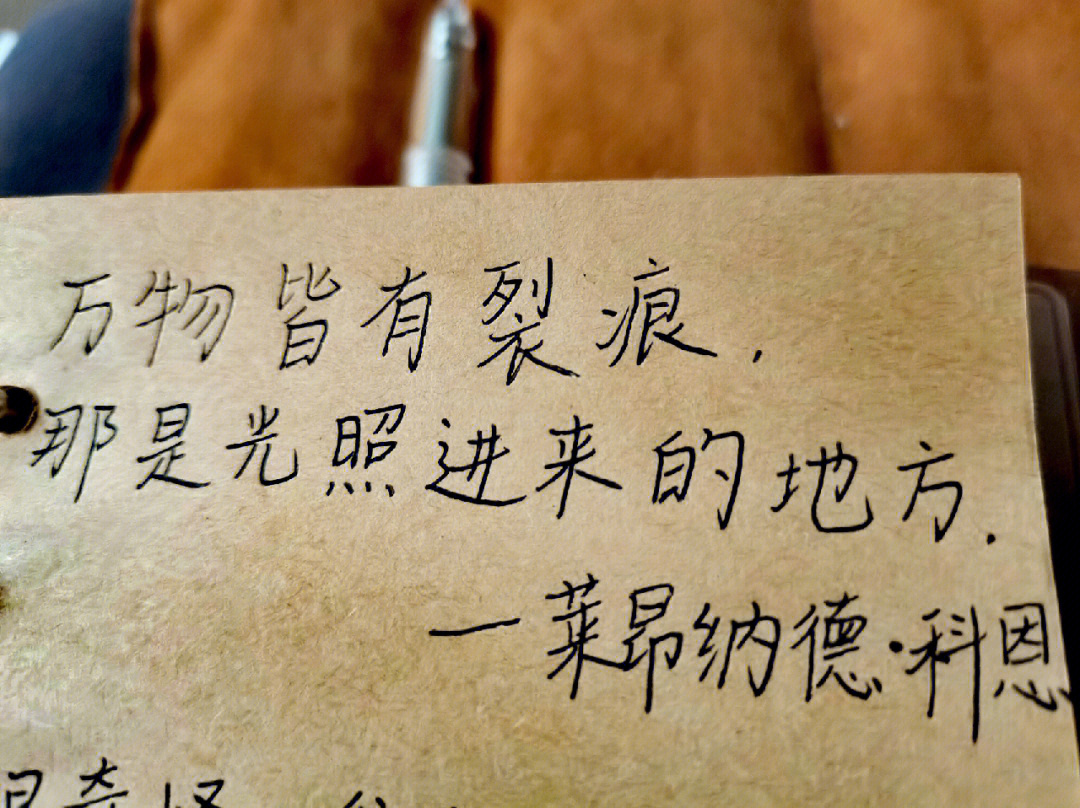 万物皆有裂痕.
那是光照进来的地方.
—莱昂纳德·科恩
奇怪